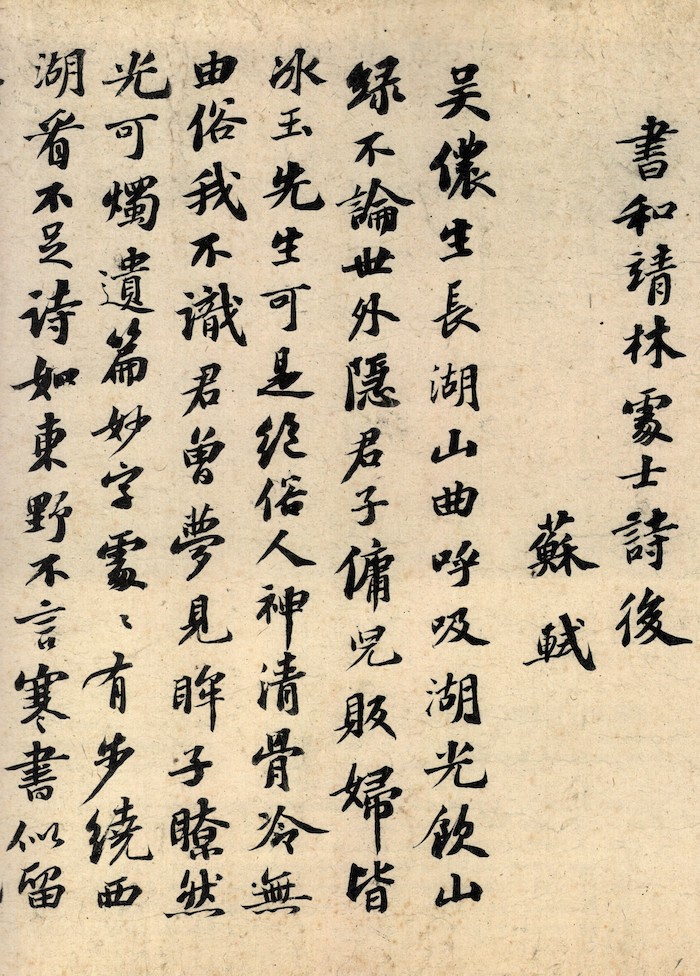 書和靖林處士詩後
蘇軾
吴儂生長湖山曲呼吸湖光飲山
緑不論世外隱君子傭兒販婦皆
冰玉先生可是絶俗人神清骨冷無
由俗我不識君曾夢見眸子瞭然
光可燭遺篇妙字處〻有步繞西
湖看不足詩如東野不言寒書似留